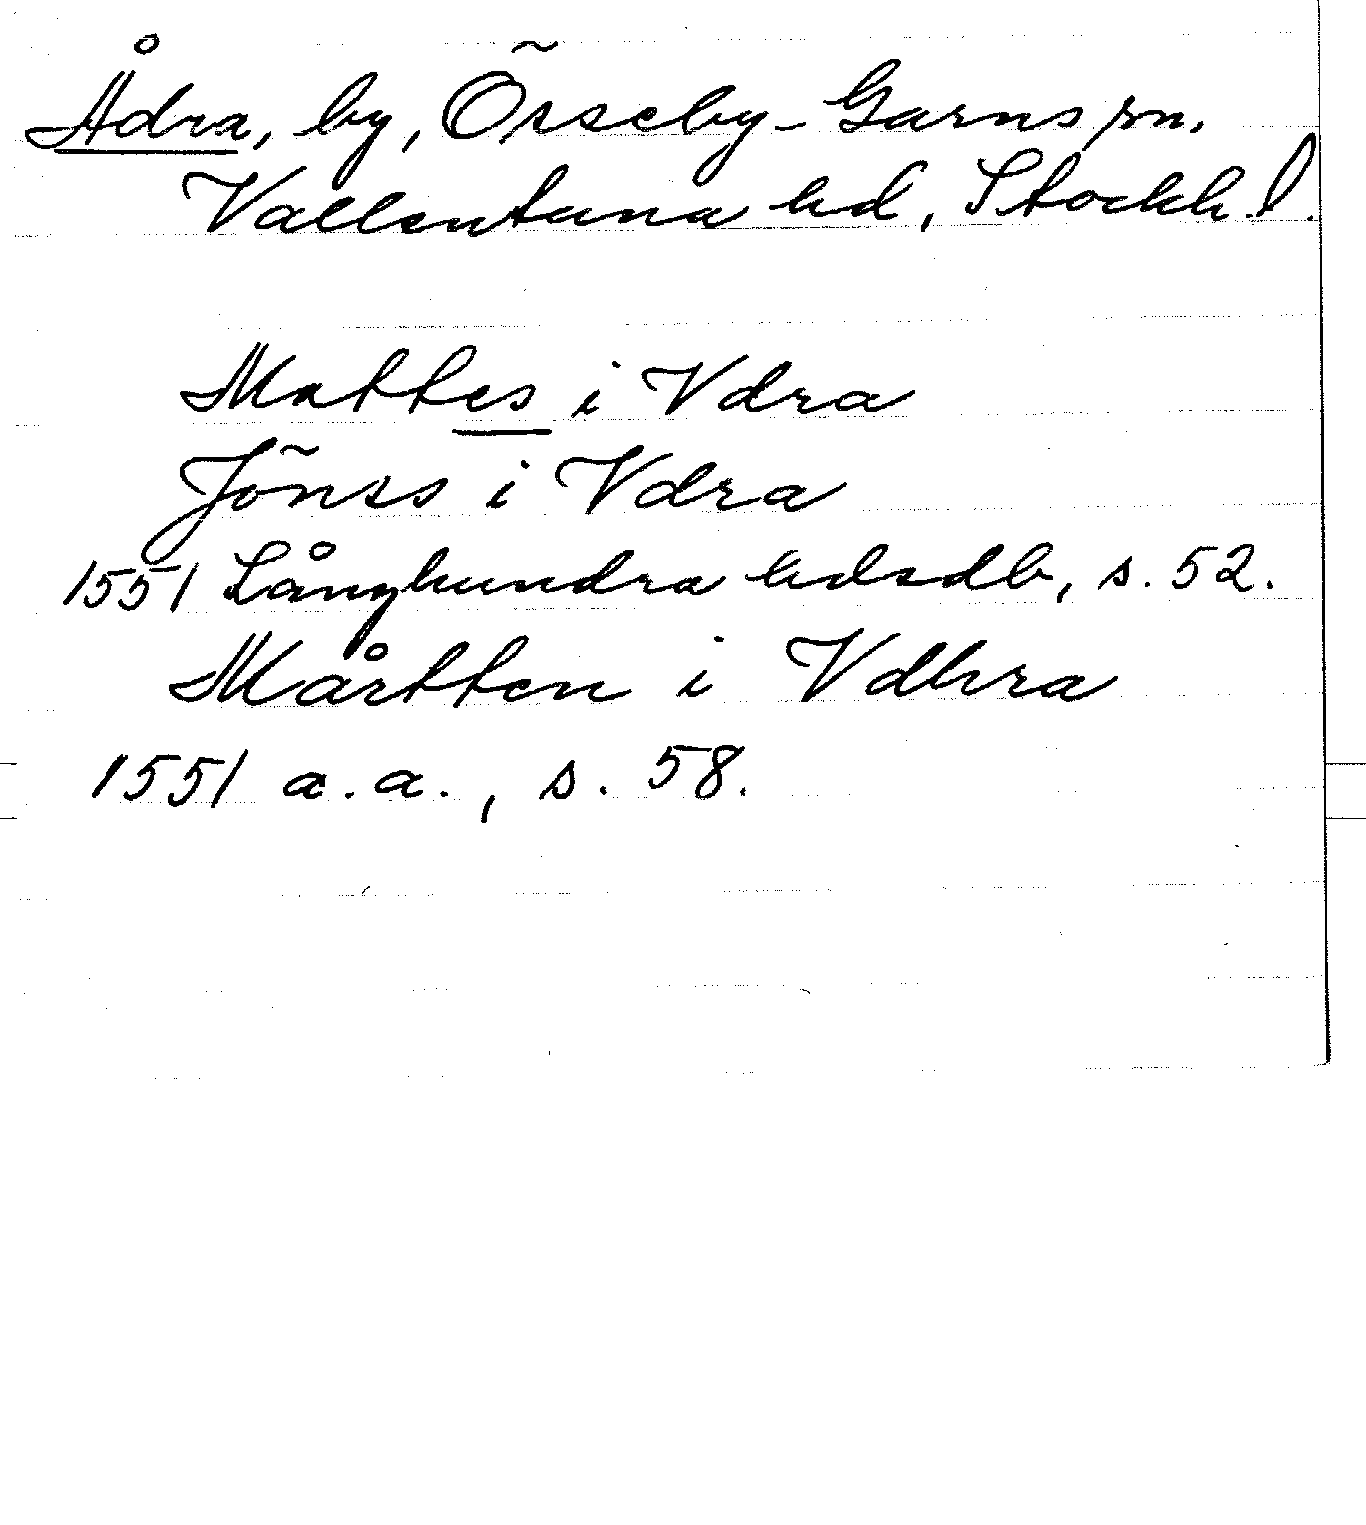 Ådra, by, Össeby-Garns sn.
Vallentuna hd, Stockh. l.
Mattes i Vdra
Jönss i Vdra
1551 Långhundra hdsdb, s. 52.
Mårtten i Vdhra
1551 a.a., s. 58.